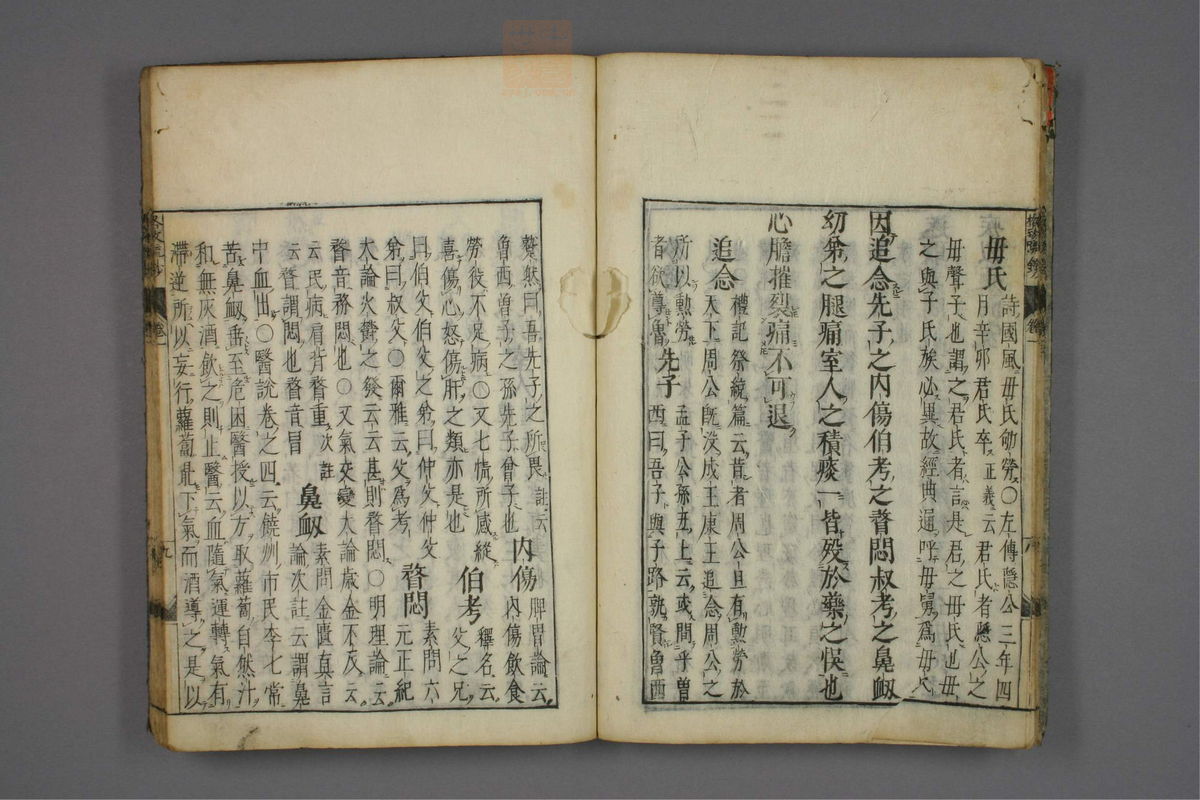 毋氏 詩國風毋氏劬勞○左傳隱公三年四
月辛卯君氏卒正義云君氏者隱公之
毋聲子也謂之君氏者言是君之毋氏也毋
之與子氏族必異故經典通呼毋舅為毋氏
因追念先子之內傷伯考之瞀悶叔考之鼻衂
幼弟之腿痛室人之積痰一皆歿於藥之悞也
心膽摧裂痛不可退
追念 禮記祭統篇云昔者周公旦有勲勞於
天下周公旣沒成王康王追念周公之
所以勲勞
者欲尊魯 先子 孟子公孫丑上云或問乎曾
西曰吾子與子路孰賢魯西
蹵然曰吾先子之所畏註云
魯西曽子之孫先子曾子也 內傷 脾胃論云
內傷飲食
勞役不足病○又七情所感縱
喜傷心怒傷肝之類亦是也 伯考 釋名云
父之兄
曰伯父伯父之弟曰仲父仲父
弟曰叔父○爾雅云父為考 瞀悶 素問六
元正紀
大論火鬱之發云云甚則瞀悶○明理論云
瞀音務悶也○又氣交變大論歲金不及云
云民病肩背瞀重次註
云瞀謂悶也瞀音冒 鼻衂 素問金匱真言
論次註云謂鼻
中血出○醫說卷之四云饒州市民李七常
苦鼻衂垂至危困醫授以方取蘿蔔自然汁
和無灰酒飲之則止醫云血隨氣運轉氣有
滯逆所以妄行蘿蔔䟡下氣而酒導之是以